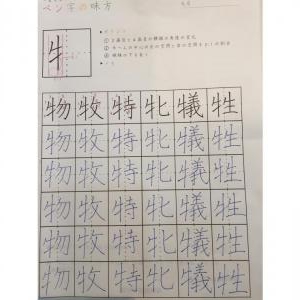 ペン字の味方
牜
物 牧 特 牝 犠 牲
物 牧 特 牝 犠 牲
物 牧 特 牝 犠 牲
物 牧 特 牝 犠 牲
物 牧 特 牝 犠 牲
物 牧 特 牝 犠 牲